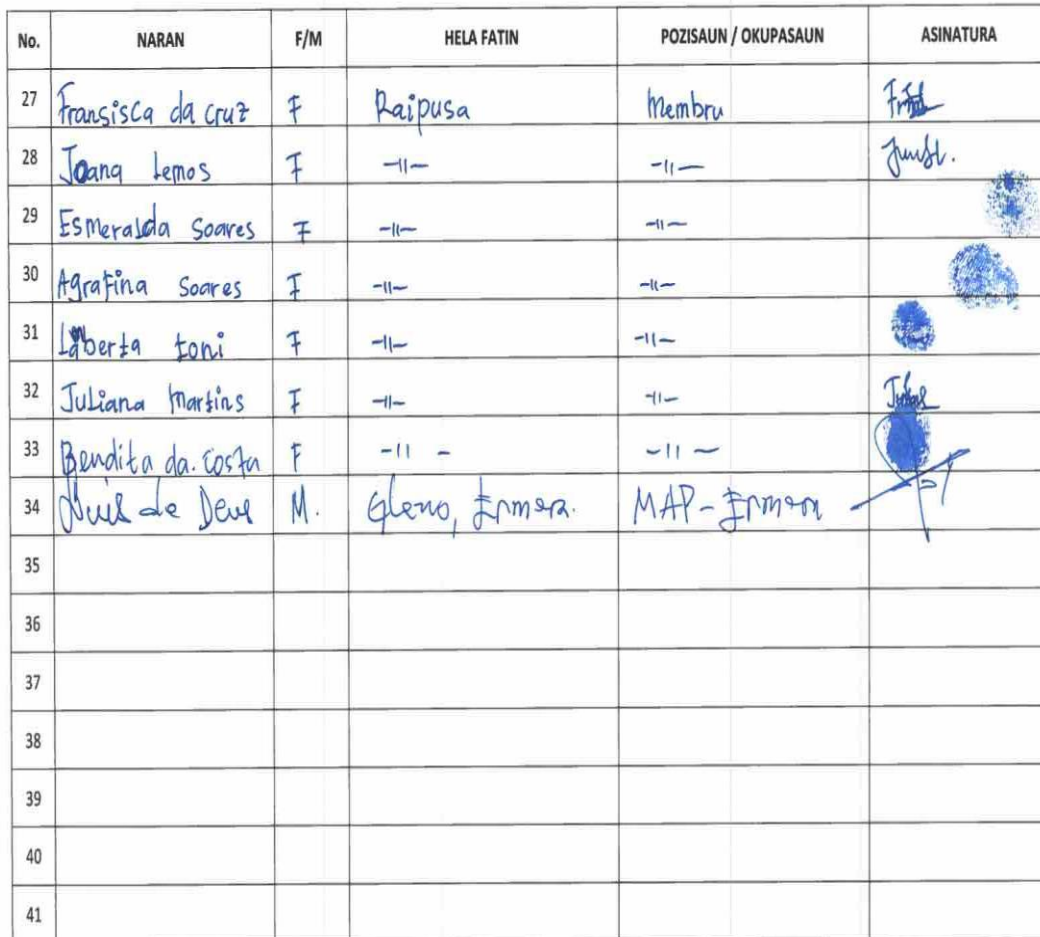 No. NARAN F/M HELA FATIN POZISAUN / OKUPASAUN ASINATURA
27 Fransisca da Cruz F Raipusa Membru
28 Joana Lemos F -11- -11-
29 Esmeralda Soares F -11- -11-
30 Agrafina Soares F -11- -11-
31 toni F -11- -11-
32 Juliana Martins F -11- -11-
33 Bendita da. Costa F -11- -11-
34 de Deus M. Gleno, Ermera. MAP-Ermera
35
36
37
38
39
40
41